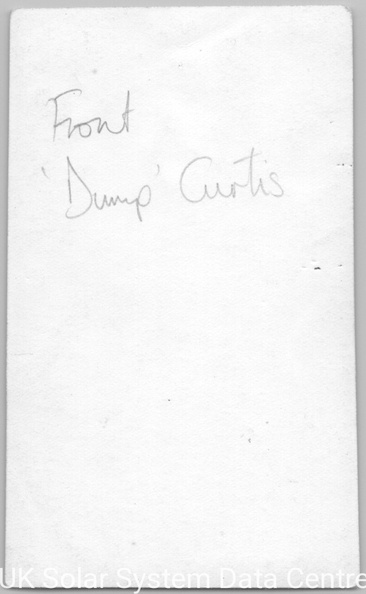 Front
'Dump' Curtis
UK Solar System Data Centre